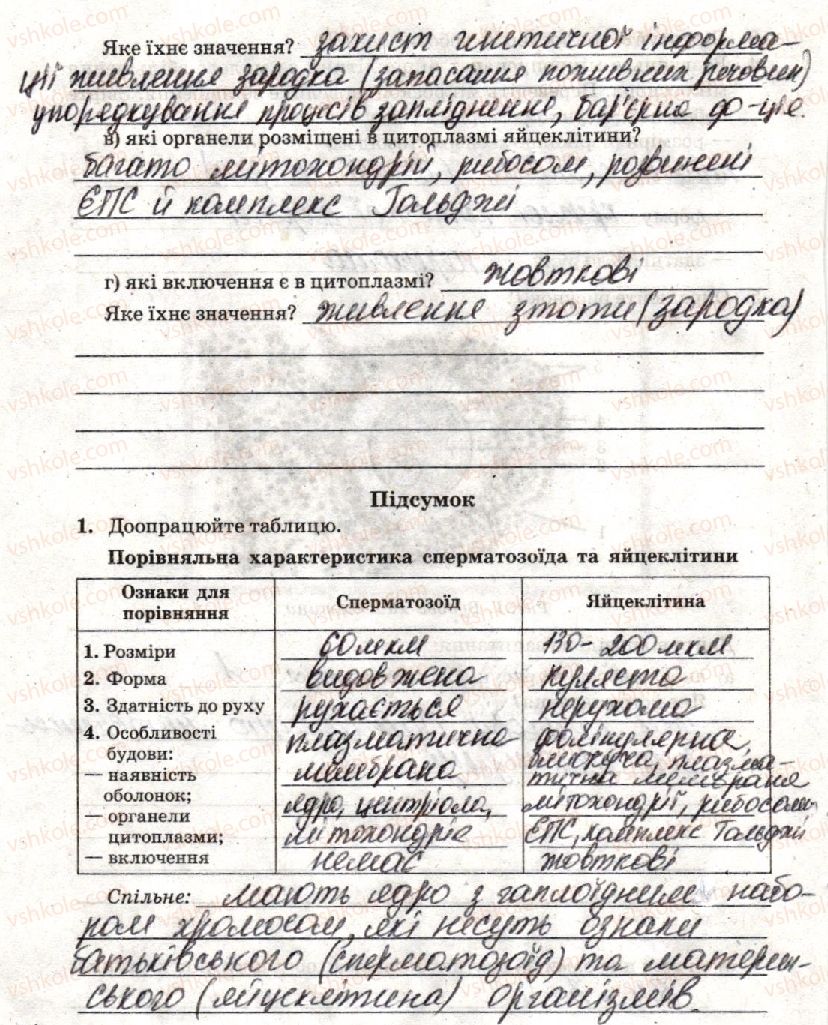 Яке їхнє значення? захист гнетичної інформа-
ції живлення зародка (запасання поживних речовин)
упорядкування процесів запліднення, бар'єрна ф-ція.
в) які органели розміщені в цитоплазмі яйцеклітини?
багато мітохондрій, рибосом, розвинені
ЄПС й комплекс Гольджі
г) які включення є в цитоплазмі? жовткові
Яке їхнє значення? живлення зготи (зародка)
Підсумок
1. Доопрацюйте таблицю.
Порівняльна характеристика сперматозоїда та яйцеклітини
Ознаки для порівняння Сперматозоїд Яйцеклітина
1. Розміри 60мкм 130-200мкм
2. Форма видовжена куляста
3. Здатність до руху рухається нерухома
4. Особливості будови: плазматична фолікулярна,
— наявність мембрана блискуча, плазма-
оболонок; тична мембрана
— органели ядро, центріоля, мітохондрії, рибосоми
цитоплазми; мітохондріє ЄПС, комплекс Гольджі
— включення немає жовткові
Спільне: мають ядро з гаплоїдним набо-
ром хромосом, які несуть ознаки
батьківського (сперматозоїд) та материн-
ського (яйцеклітина) організмів.
vshkole.com